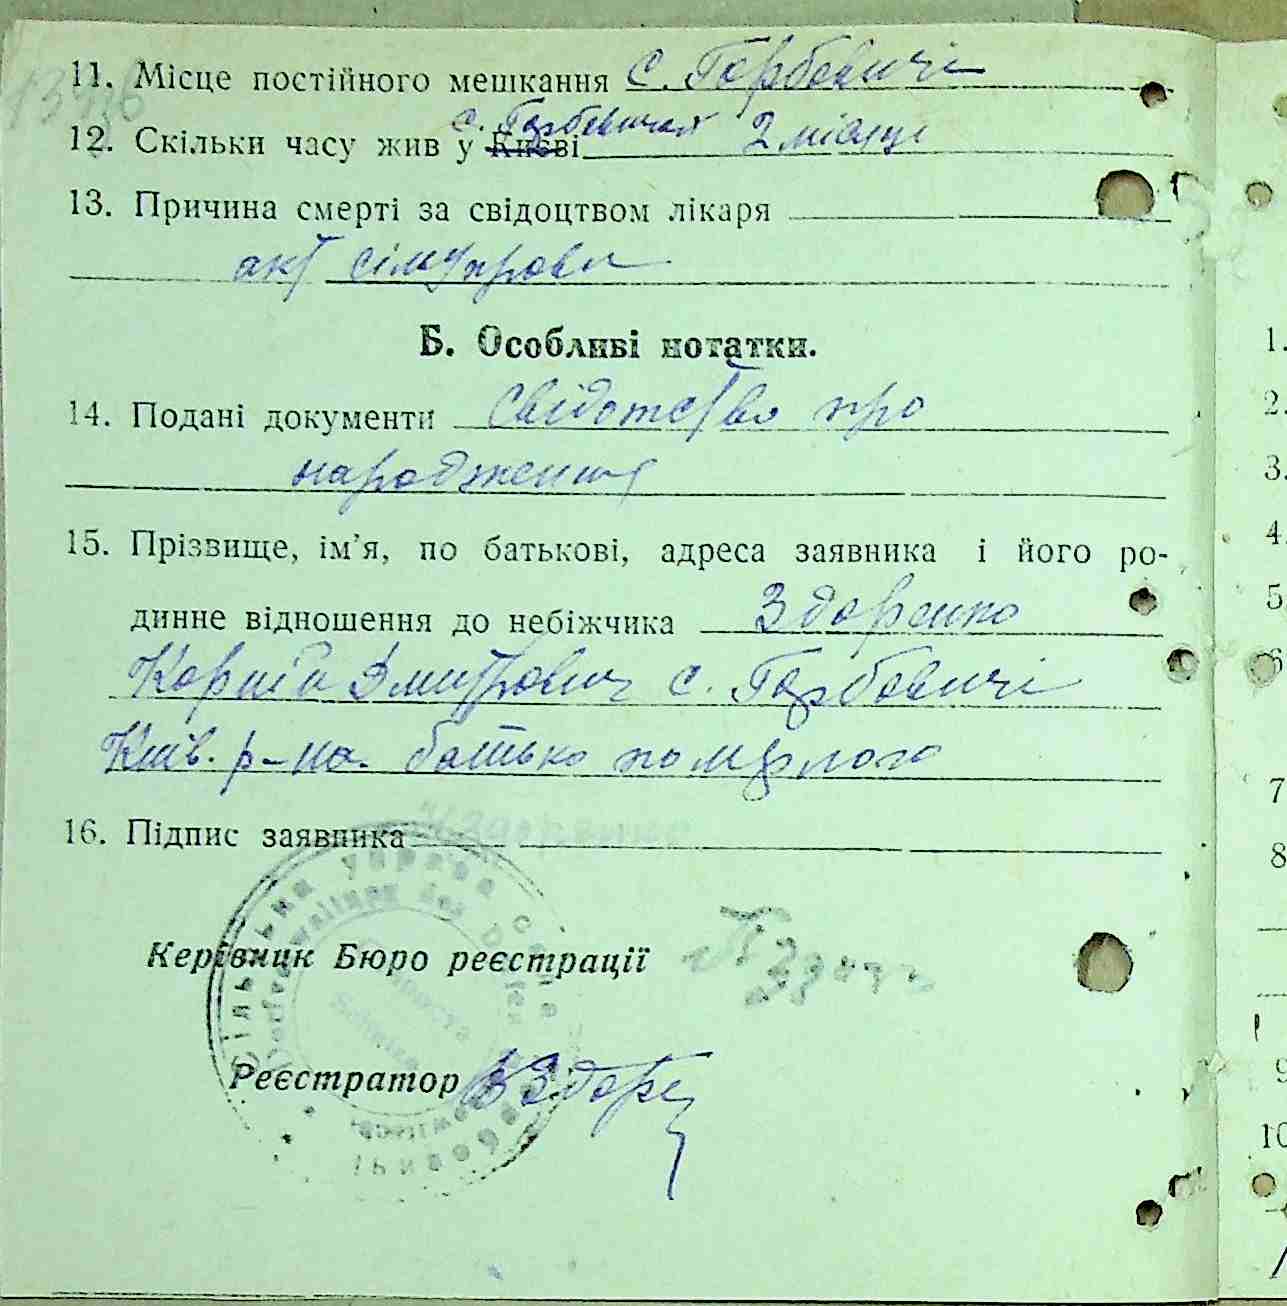 11. Місце постійного мешкання с. Горбовичі
с. Горбовичах
12. Скільки часу жив у Києві 2 місяці
13. Причина смерті за свідоцтвом лікаря
акт сільуправи
Б. Особливі нотатки.
14. Подані документи Свідотство про
народження
15. Прізвище, ім'я, по батькові, адреса заявника і його ро-
динне відношення до небіжчика Здоренко
Корній Дмитрович с. Горбовичі
Київ. р-на. батько померлого
16. Підпис заявника
Керівник Бюро реєстрації
Реєстратор
Сільська управа села
1.
2.
3.
4.
5.
6.
7
8
9
10